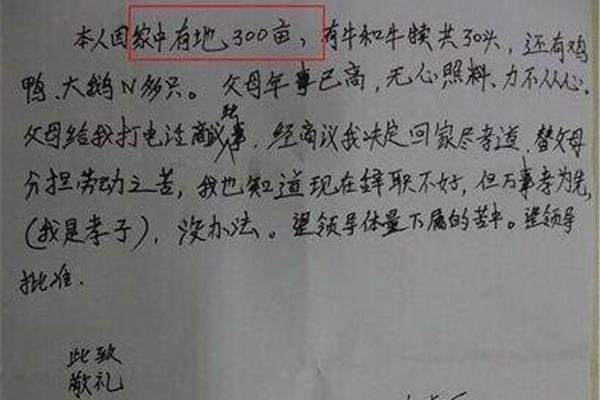 本人因家中有地300亩，有牛和牛犊共30头，还有鸡
鸭、大鹅N多只。父母年事已高，无心照料、力不从心。
父母给我打电话商议此事，经商议我决定回家尽孝道，替父母
分担劳动之苦，我也知道现在辞职不好，但万事孝为先，
(我是孝子)，没办法。望领导体量下属的苦中。望领导
批准.
此致
敬礼